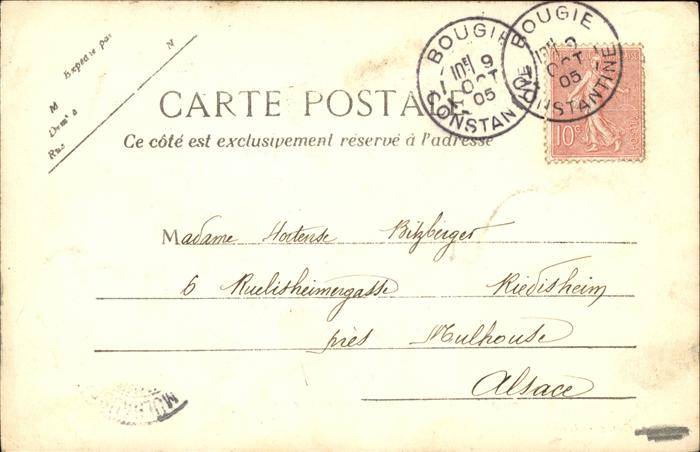 Expédié par
N
M
Demt à
Rue
BOUGIE
CONSTANTINE
10E 9
OCT
05
BOUGIE
CONSTANTINE
10E 9
OCT
05
CARTE POSTALE
Ce côté est exclusivement réservé à l'adresse
10c
Madame Hortense Bilzberger
6 Ruelisheimergasse Riedisheim
près Mulhouse
Alsace